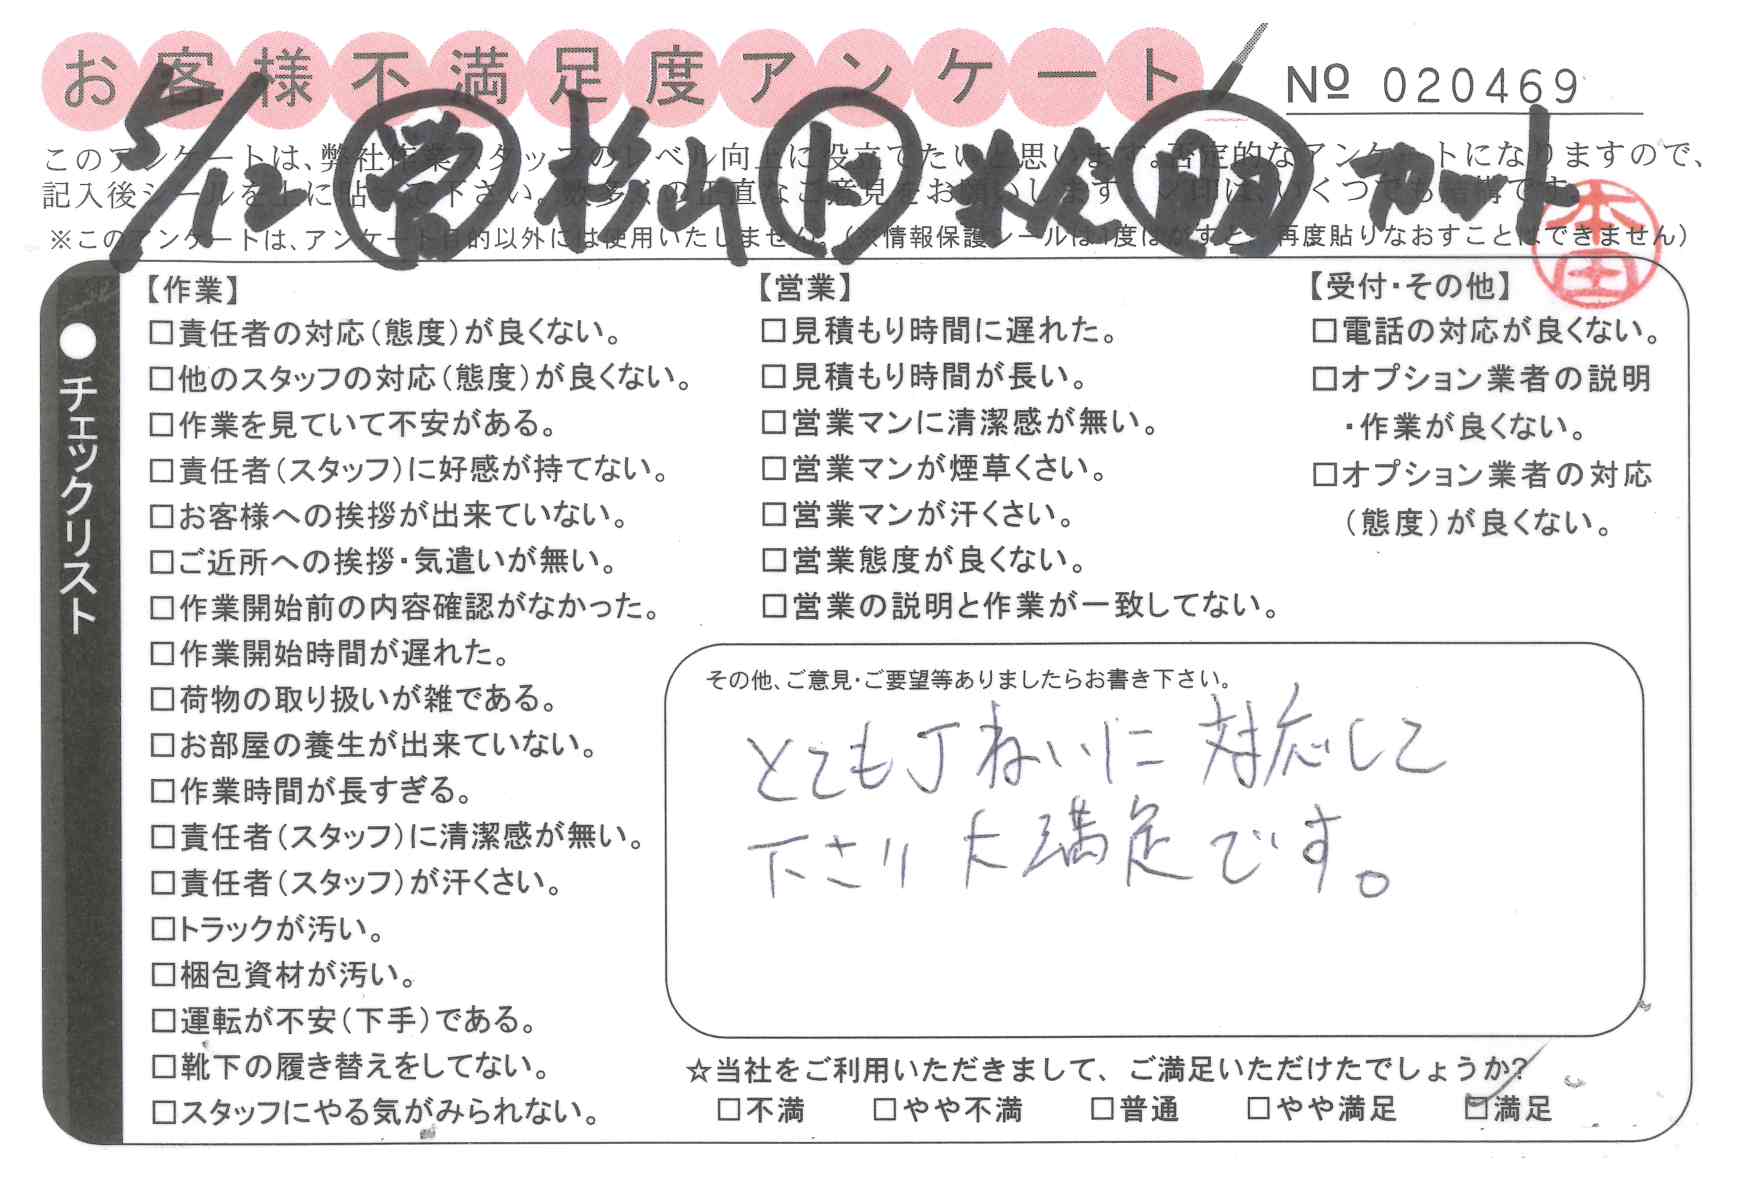 お客様不満足度アンケート
№ 020469
5/12 営 杉山 ド 明 カット
このアンケートは、弊社作業スタッフのレベル向上に役立てたいと思います。否定的なアンケートになりますので、
記入後シールを上に貼って下さい。数多くの正直なご意見をお願いします。レ印は、いくつでも結構です。
※このアンケートは、アンケート目的以外には使用いたしません。(※情報保護シールは1度はがすと、再度貼りなおすことはできません)
本田
●チェックリスト
【作業】
□責任者の対応(態度)が良くない。
□他のスタッフの対応(態度)が良くない。
□作業を見ていて不安がある。
□責任者(スタッフ)に好感が持てない。
□お客様への挨拶が出来ていない。
□ご近所への挨拶・気遣いが無い。
□作業開始前の内容確認がなかった。
□作業開始時間が遅れた。
□荷物の取り扱いが雑である。
□お部屋の養生が出来ていない。
□作業時間が長すぎる。
□責任者(スタッフ)に清潔感が無い。
□責任者(スタッフ)が汗くさい。
□トラックが汚い。
□梱包資材が汚い。
□運転が不安(下手)である。
□靴下の履き替えをしてない。
□スタッフにやる気がみられない。
【営業】
□見積もり時間に遅れた。
□見積もり時間が長い。
□営業マンに清潔感が無い。
□営業マンが煙草くさい。
□営業マンが汗くさい。
□営業態度が良くない。
□営業の説明と作業が一致してない。
【受付・その他】
□電話の対応が良くない。
□オプション業者の説明
・作業が良くない。
□オプション業者の対応
(態度)が良くない。
その他、ご意見・ご要望等ありましたらお書き下さい。
とても丁ねいに対応して
下さり大満足です。
☆当社をご利用いただきまして、ご満足いただけたでしょうか?
□不満 □やや不満 □普通 □やや満足 □満足